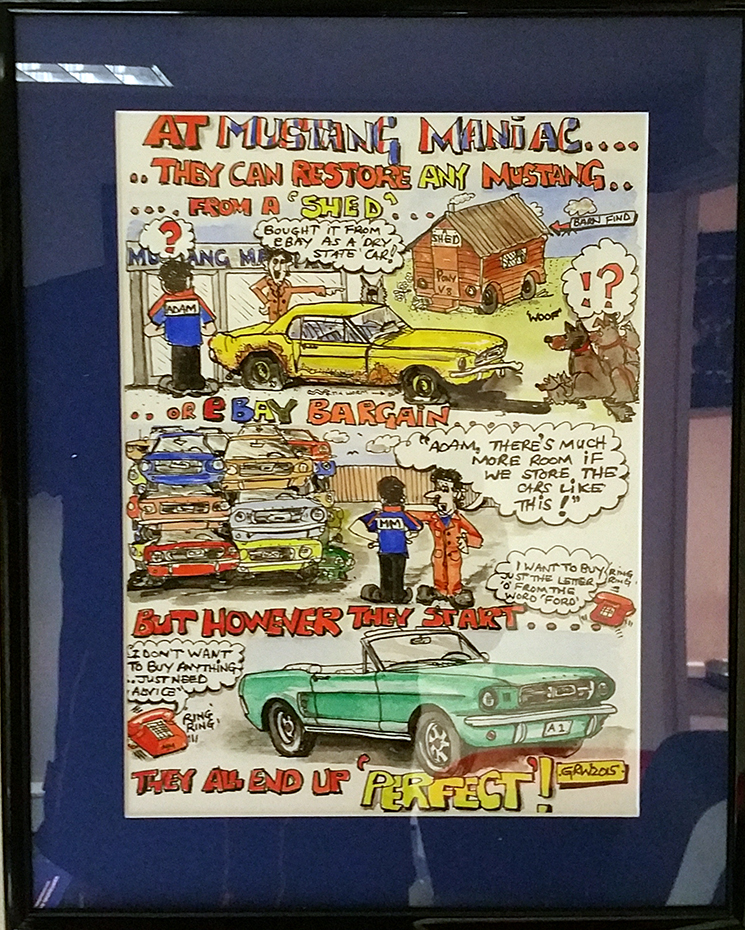 AT MUSTANG MANIAC....
..THEY CAN RESTORE ANY MUSTANG..
.... FROM A 'SHED'....
BARN FIND
?
BOUGHT IT FROM
EBAY AS A DRY
STATE CAR!
SHED
PONY
V8
MUSTANG M
ADAM
!?
'WOOF'
...OR EBAY BARGAIN
"ADAM, THERE'S MUCH
MORE ROOM IF
WE STORE THE
CARS LIKE
THIS!"
MM
I WANT TO BUY
JUST THE LETTER
'O' FROM THE
WORD 'FORD'
RING
RING
BUT HOWEVER THEY START.....
I DON'T WANT
TO BUY ANYTHING
..JUST NEED
ADVICE"
RING
RING'
MM
A1
THEY ALL END UP 'PERFECT'!
GRW2015